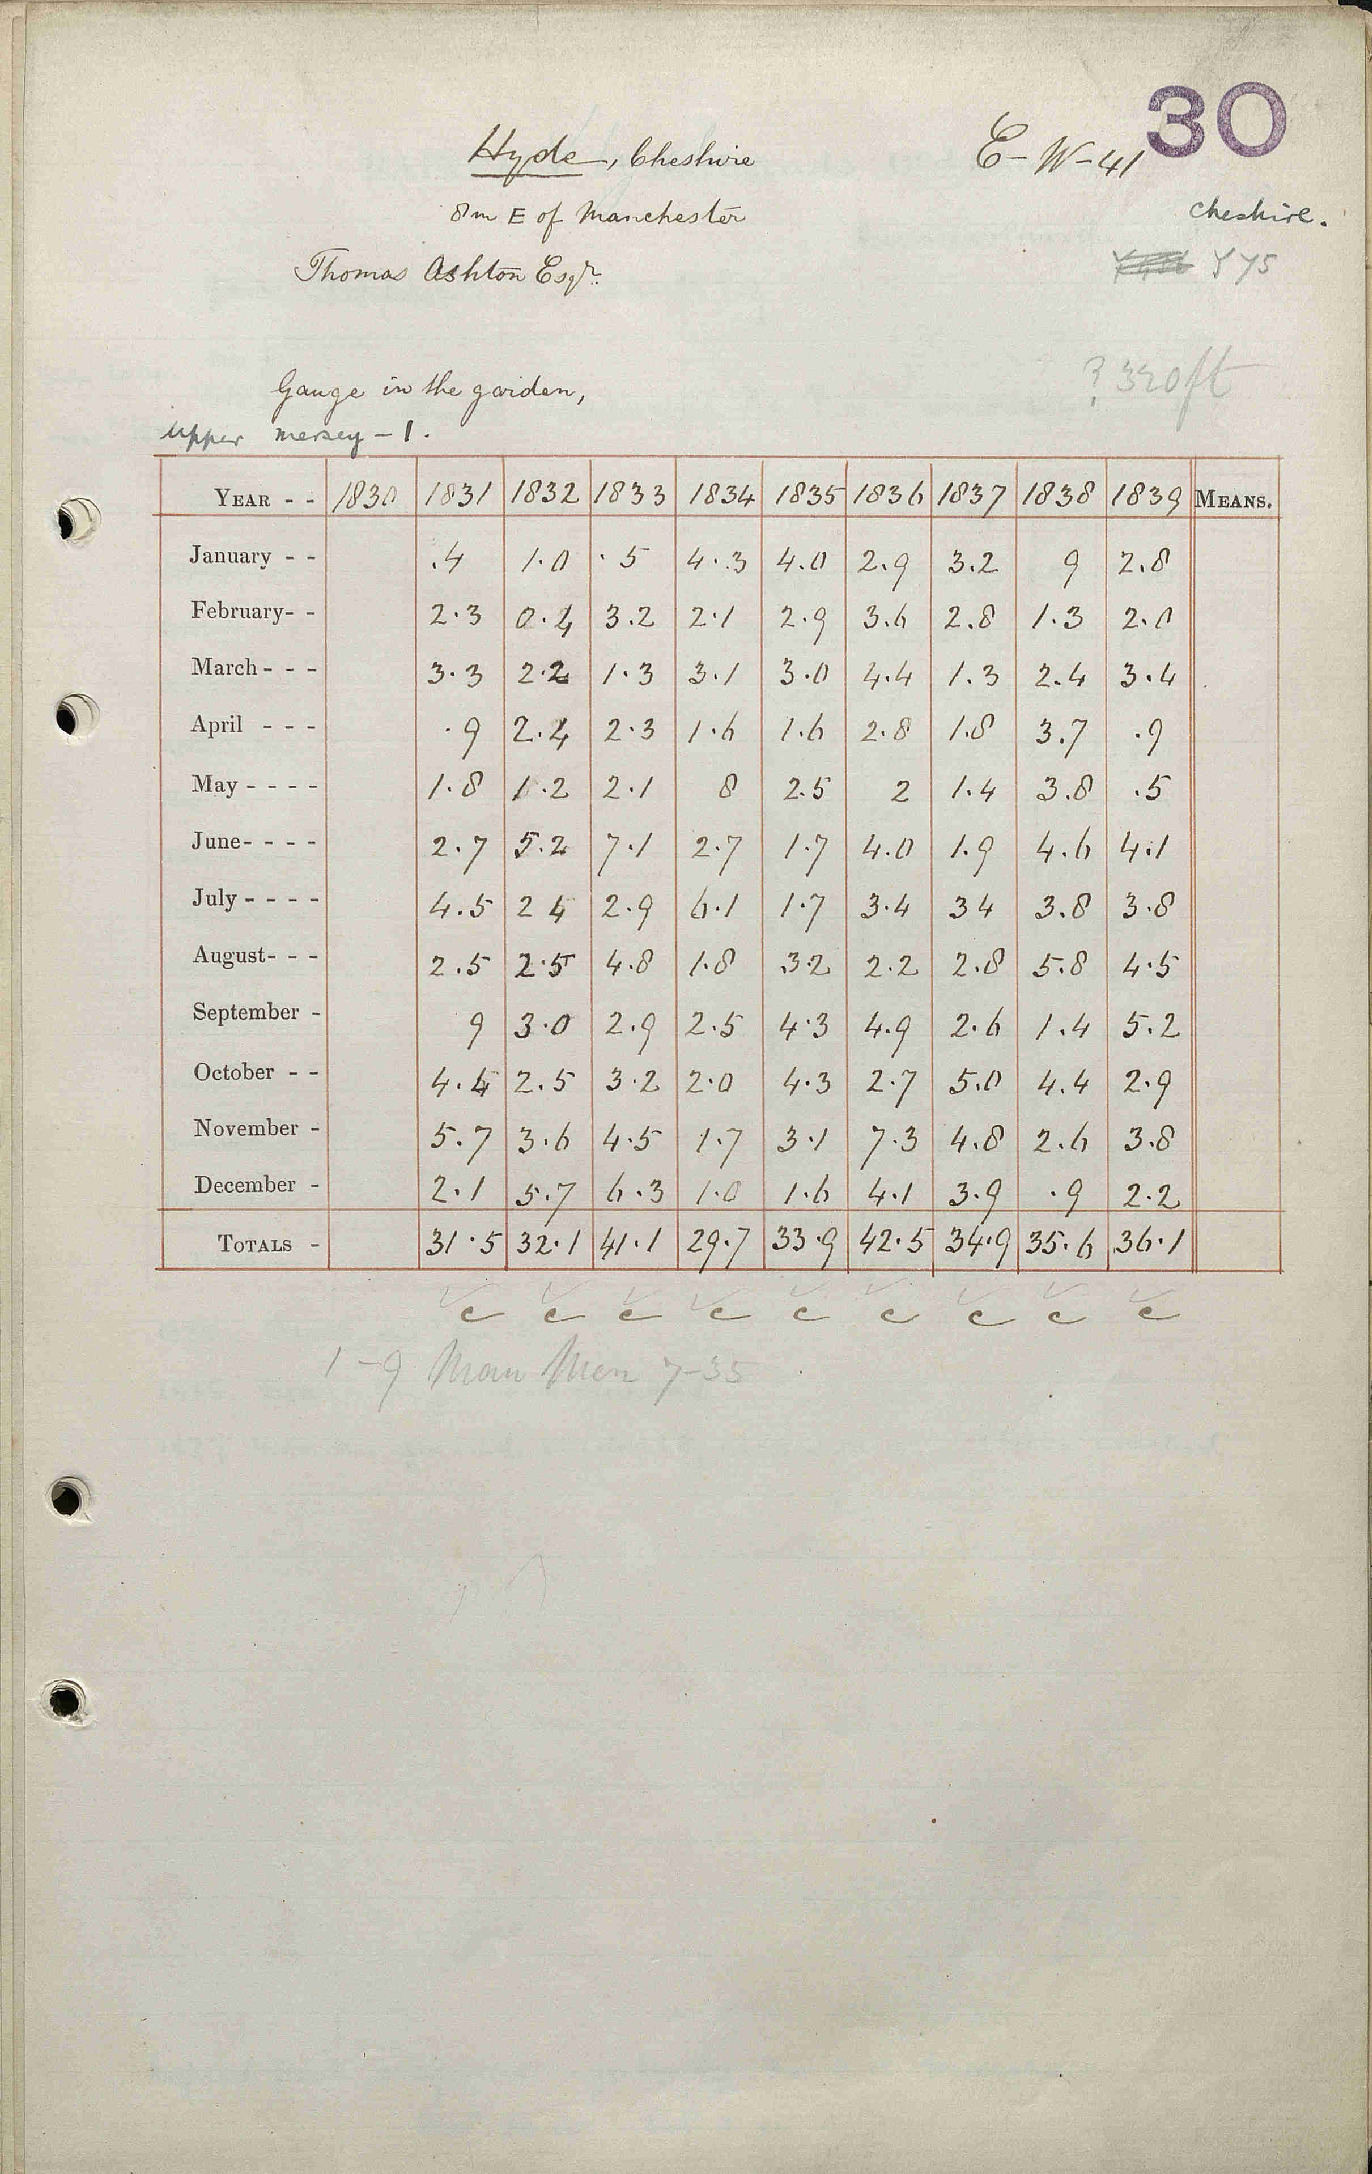 30
Hyde, Cheshire E-W-41
8m E of Manchester Cheshire.
Thomas Ashton Esqr. Y 75
? 320ft
Gauge in the garden,
Upper Mersey - 1.
YEAR - - 1830 1831 1832 1833 1834 1835 1836 1837 1838 1839 MEANS.
January - - .4 1.0 .5 4.3 4.0 2.9 3.2 9 2.8
February- - 2.3 0.4 3.2 2.1 2.9 3.6 2.8 1.3 2.0
March - - - 3.3 2.2 1.3 3.1 3.0 4.4 1.3 2.4 3.4
April - - - .9 2.4 2.3 1.6 1.6 2.8 1.8 3.7 .9
May - - - - 1.8 1.2 2.1 8 2.5 2 1.4 3.8 .5
June- - - - 2.7 5.2 7.1 2.7 1.7 4.0 1.9 4.6 4.1
July - - - - 4.5 2 4 2.9 6.1 1.7 3.4 34 3.8 3.8
August- - - 2.5 2.5 4.8 1.8 32 2.2 2.8 5.8 4.5
September - 9 3.0 2.9 2.5 4.3 4.9 2.6 1.4 5.2
October - - 4.4 2.5 3.2 2.0 4.3 2.7 5.0 4.4 2.9
November - 5.7 3.6 4.5 1.7 3.1 7.3 4.8 2.6 3.8
December - 2.1 5.7 6.3 1.0 1.6 4.1 3.9 .9 2.2
TOTALS - 31.5 32.1 41.1 29.7 33.9 42.5 34.9 35.6 36.1
c c c c c c c c c
1-9 Man Mem 7-35